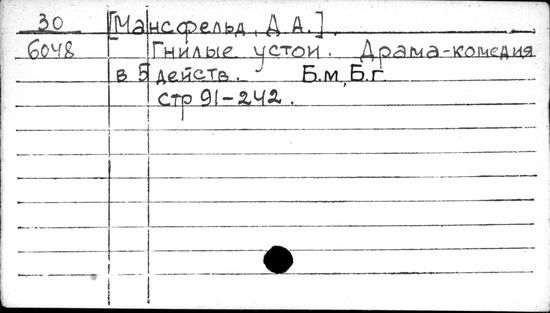 30 [Мансфельд, Д.А.].
6048 Гнилые устои. Драма-комедия
в 5 действ. Б.м., Б.г.
стр 91-242.